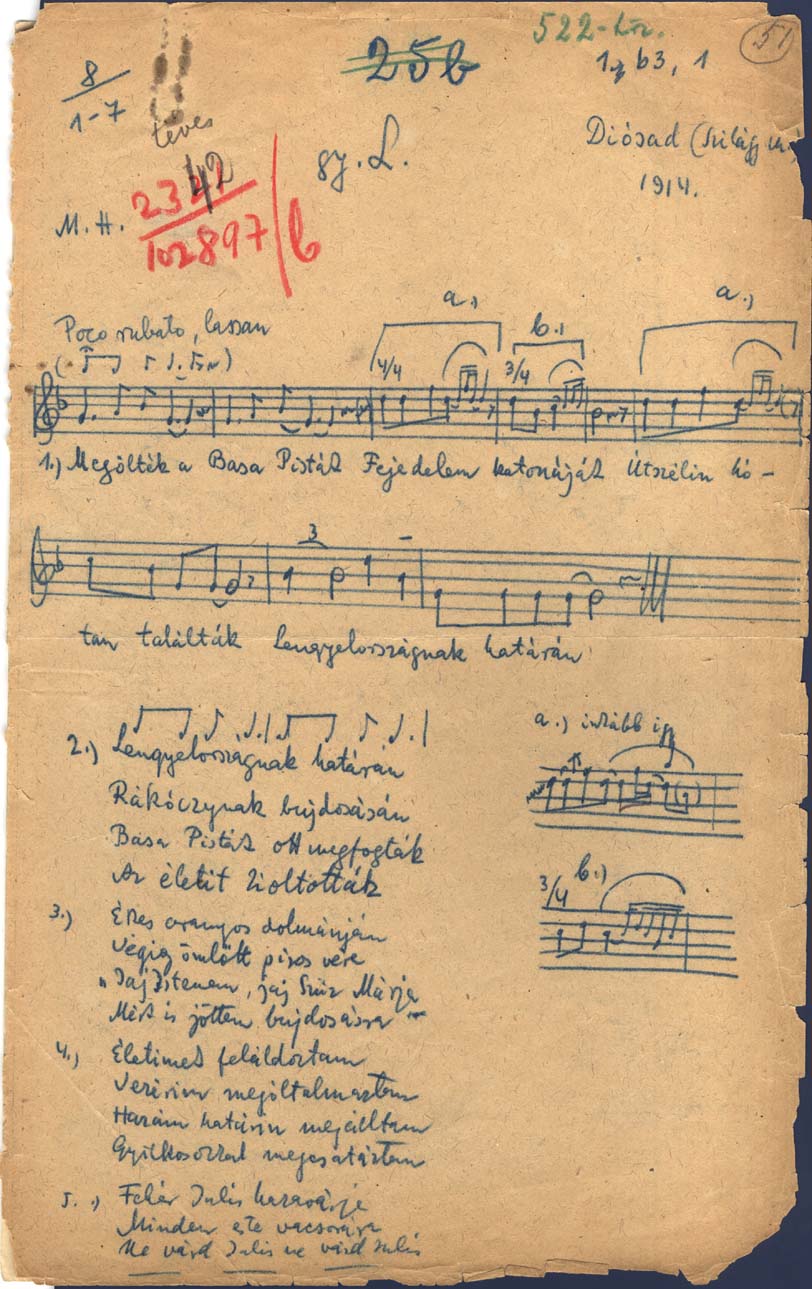 522-
51
25b
1, b3, 1
8
1-7
téves
gy. L.
Diósad (Szilágy
1914.
M. H.
42
102897/b
a.) a.)
Poco rubato, lassan b.)
4/4 3/4
1.) Megölték a Basa Pistát Fejedelem katonáját Útszélin hó -
3
tan találták Lengyelországnak határán
a.) inkább így
2.) Lengyelországnak határán
Rákóczynak bujdosásán
Basa Pistát ott megfogták
Az életit kioltották
b.)
3/4
3.) Ékes aranyos dolmányján
Végig ömlött piros vére
„Jaj Istenem, jaj Szűz Márja
Mért is jöttem bujdosásra"
4.) Életimet feláldoztam
Vezérim mególtalmaztam
Hazám határin megálltam
Gyilkosokkal megcsatáztam
5.) Fehér Julis hazavárja
Minden este vacsorára
Ne várd Julis ne várd Julis